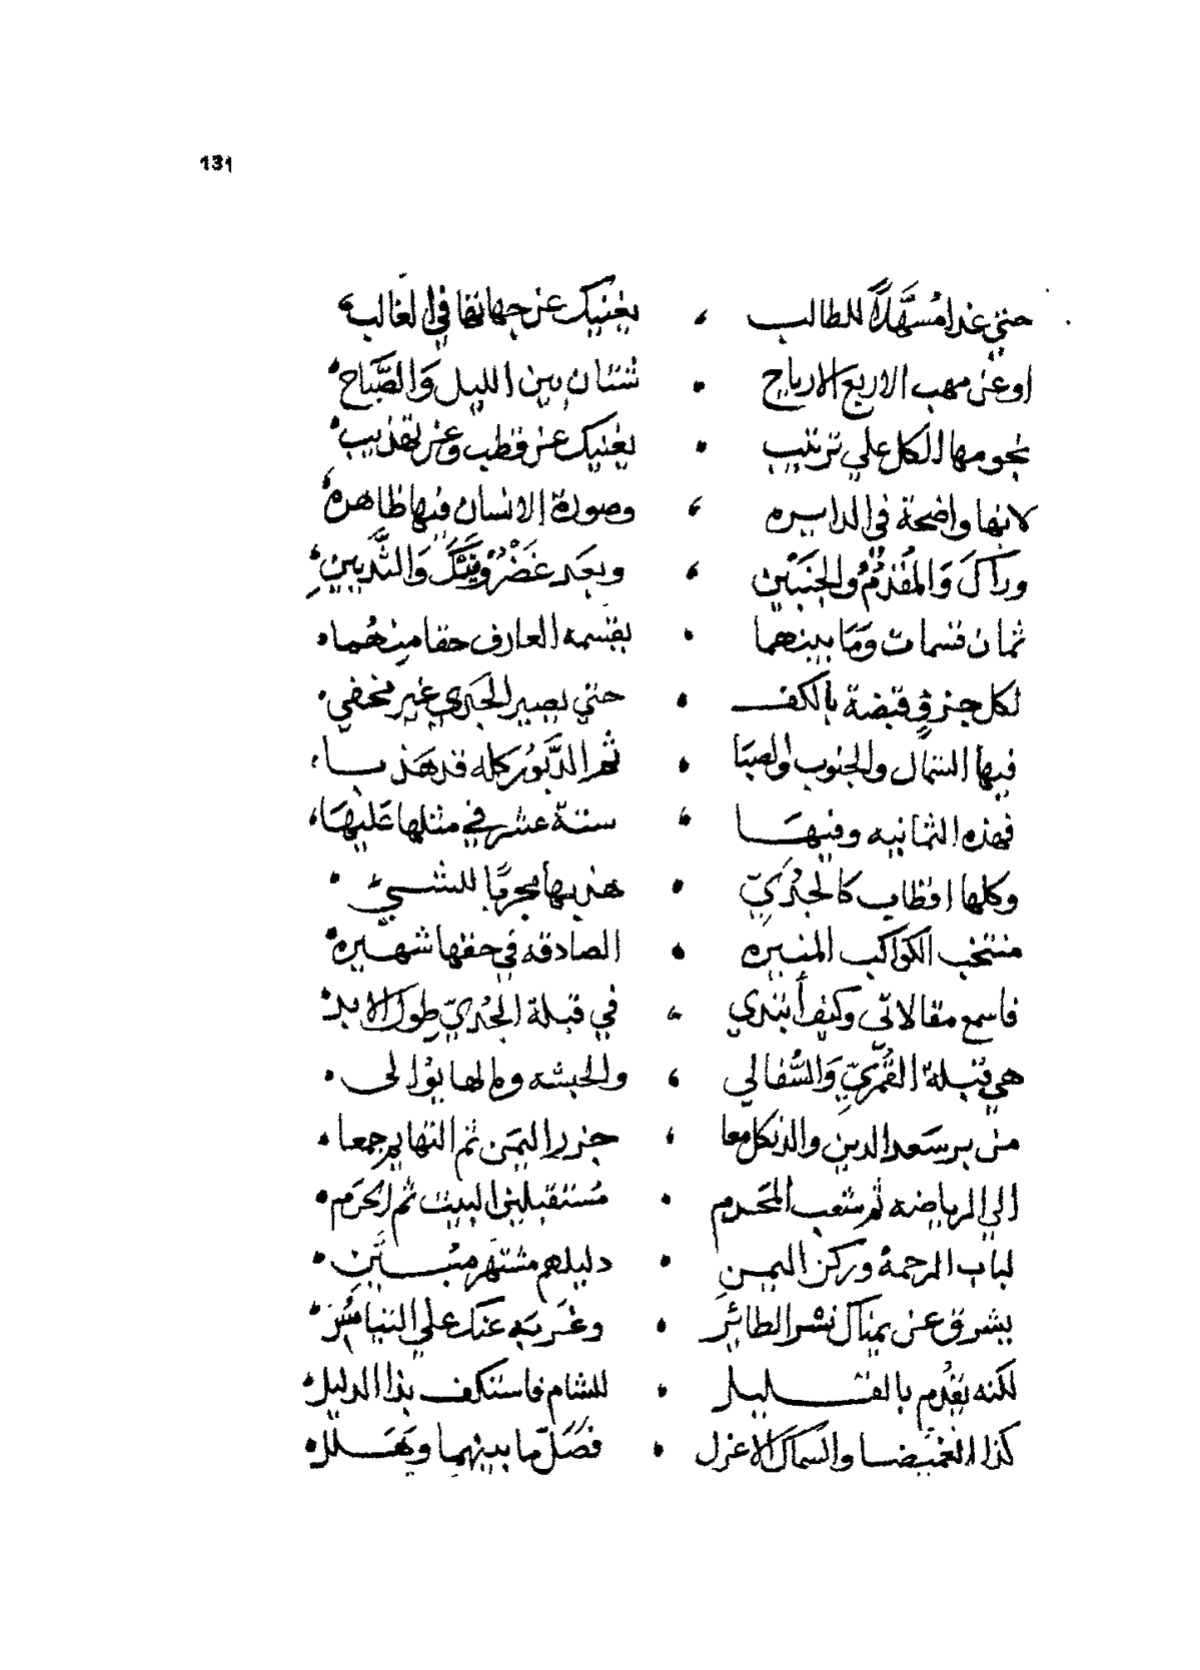 131
حتي غدا مُسَهَّلاً للطالب ، يغنيك عن جهاتها في الغالب
او عن مهب الاربع الارياح . شتان بين الليل وَالصَّباح
نجومها الكل علي ترتيب . يغنيك عن قطب وعن تقذيب
لانها واضحة في الدايره ، وصورة الانسان فيها ظاهره
ورأسك وَالمُقدَّم والجَنبَين ، وبعد وَالثَّديَينِ
ثمان قسمات وَمَا بينهما . يقسمه العارف حقا مِنهُما
لكل جزوٍ قبضة بالكف . حتي يصير الجَدي غير مخفي
فيها الشمال والجنوب والصبَا . ثم الدَّبُور كله قد هَذبا
فهذه الثمانيه وفيهَا ، ستة عشر في مثلها عَليهَا
وكلها اقطاب كالجُدَيّ . هذبها مجرّبا للشيّ
منتخب الكواكب المنيره . الصادقه في حقها شهيره
فاسمع مقالاتى وكيف أبتدي ، في قبلة الجُديّ طول الابد
هي قبلة القُمْريّ وَالسُّفالي ، والحبشه وما لها يُوالى
من بر سَعد الدين والدنكل معا ، جزر اليمَن ثم التها يرجعا
الي الرياضه ثم شعب المَحرم . مُستقبلين البيت ثم الحَرَم
لباب الرحمة وركن اليمن . دليلهم مشتهر مُبَيَّن
يشرق عن يمناك نسْر الطائر . وغربه عنك علي التياسُر
لكنه تقدم بالقليل . للشام فاستنكف بذا الدليل
كذا الغميضا والسماك الاعزل . فصَلّ ما بينهما وهَلل